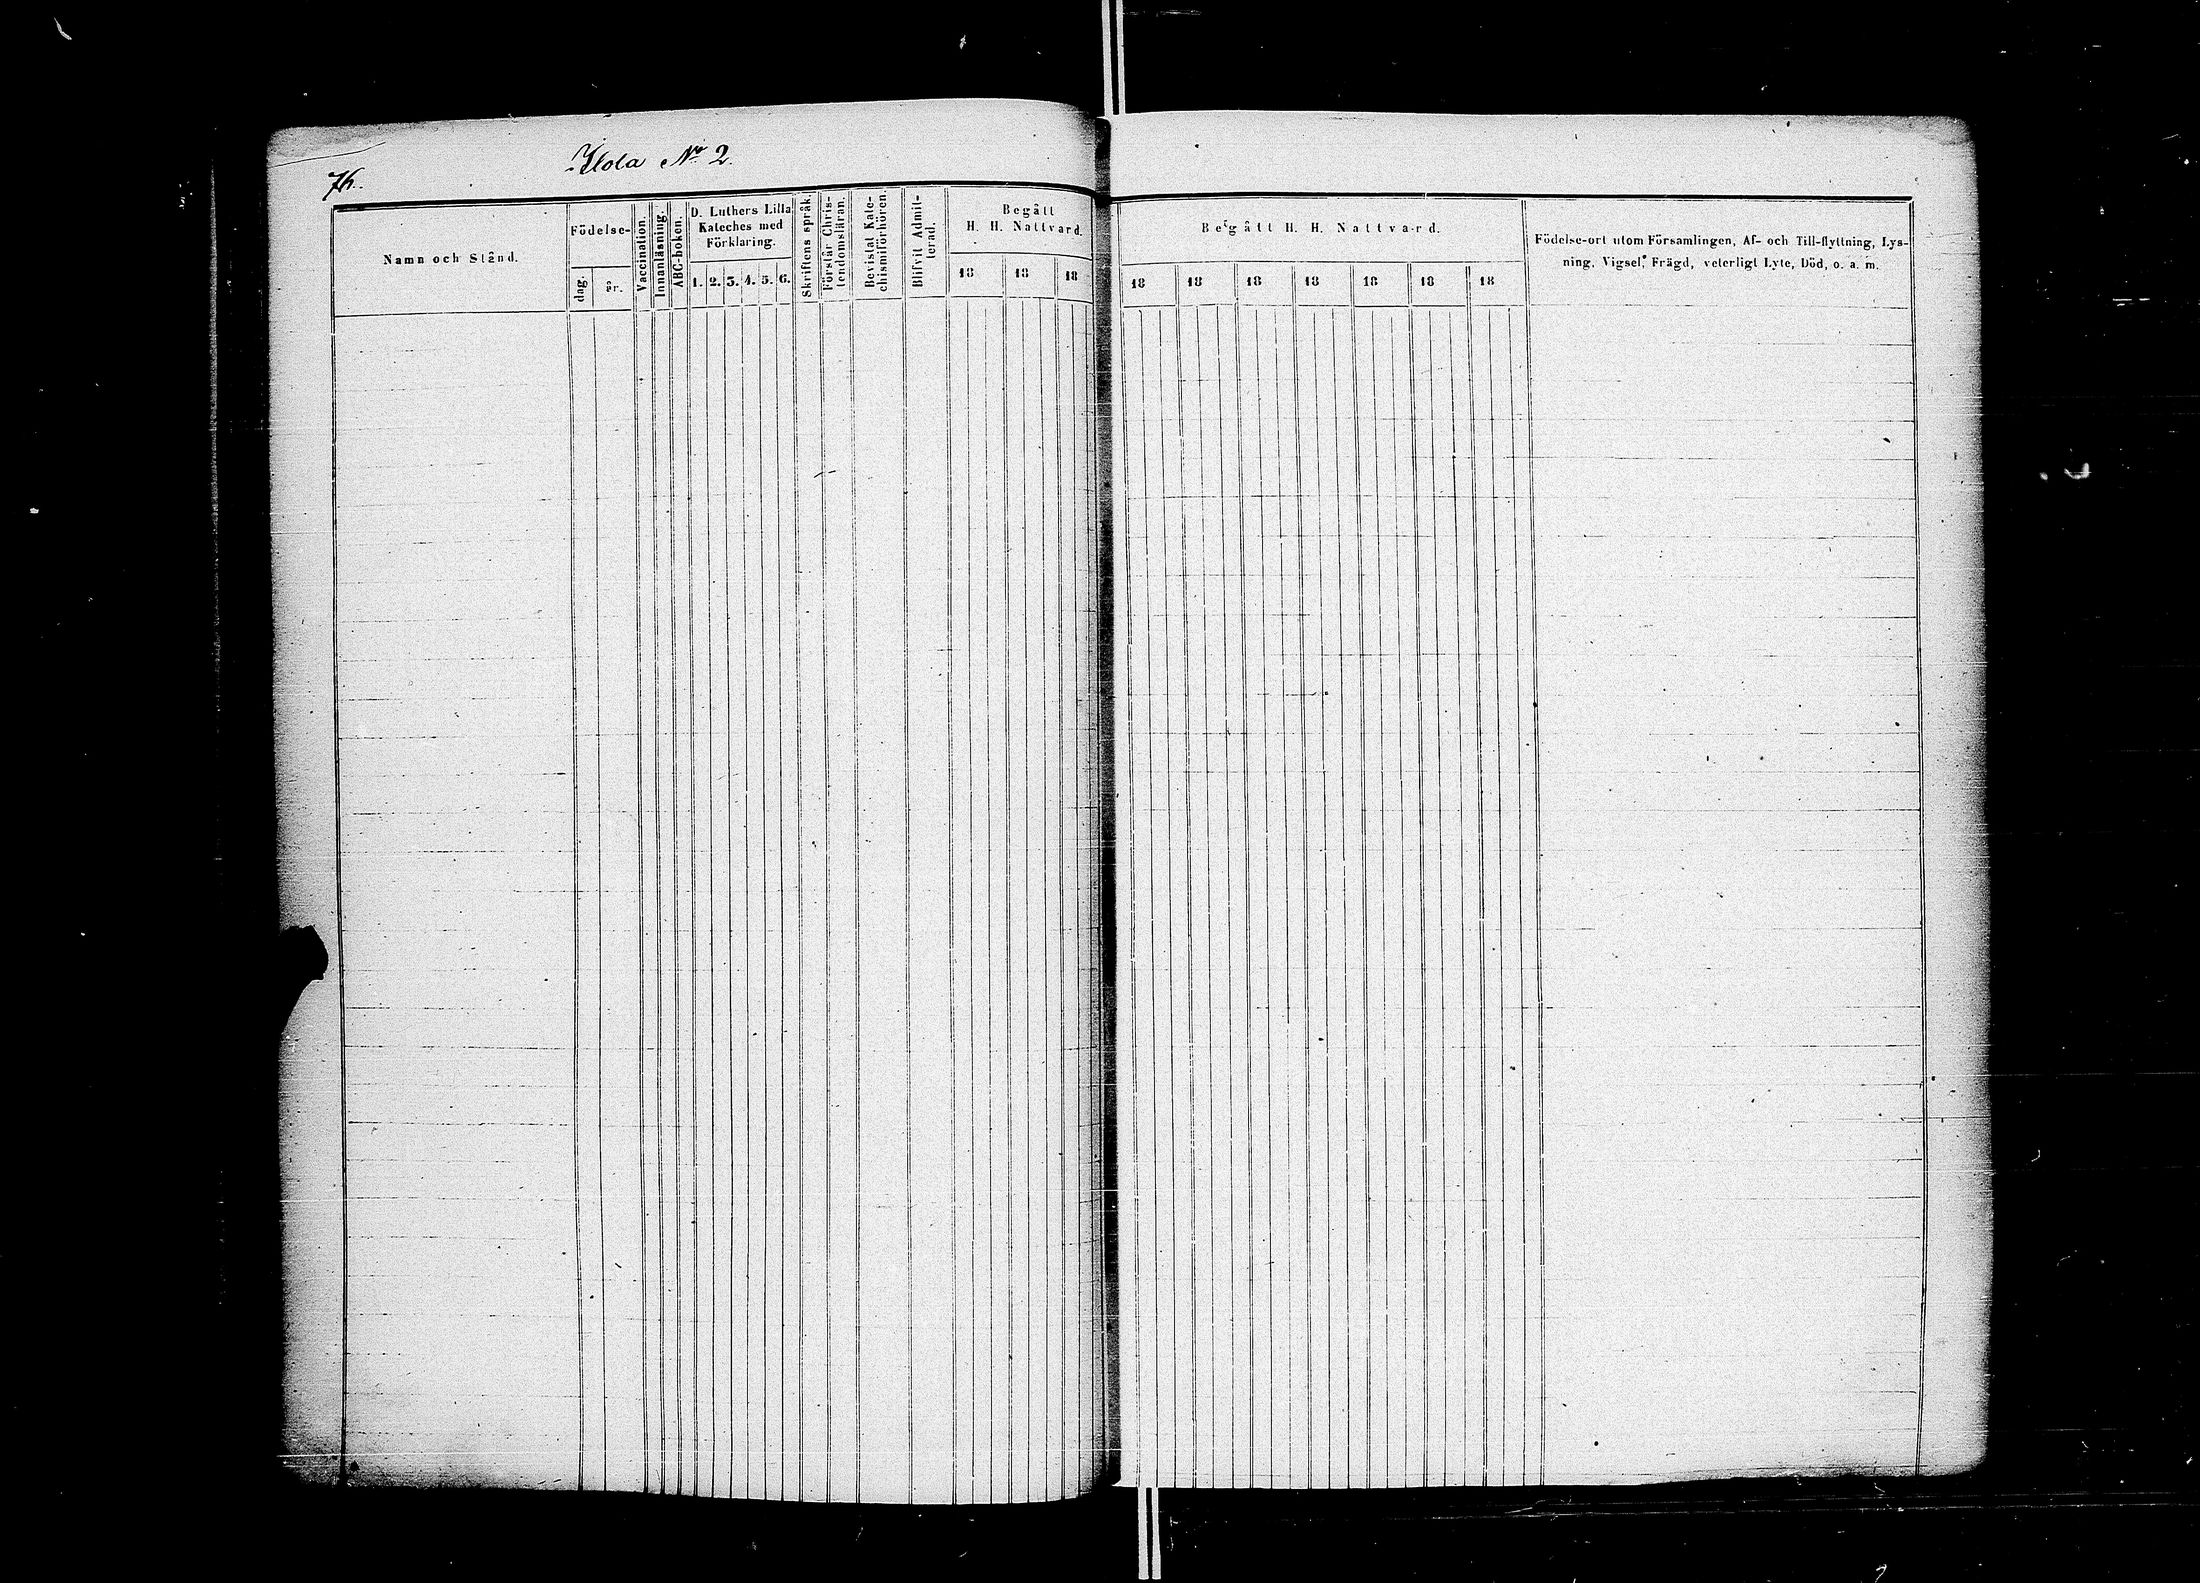 76.
Ilola No 2.
Namn och Stånd.
Födelse-
dag.
år.
Vaccination.
Innanläsning.
ABC-boken.
D. Luthers Lilla
Kateches med
Förklaring.
1. 2. 3. 4. 5. 6.
Skriftens språk.
Förstår Chris-
tendomsläran.
Bevistat Kate-
chismiförhören.
Blifvit Admit-
terad.
Begått
H. H. Nattvard.
18 18 18
Begått H. H. Nattvard.
18 18 18 18 18 18 18
Födelse-ort utom Församlingen, Af- och Till-flyttning, Lys-
ning, Vigsel, Frägd, veterligt Lyte, Död, o. a. m.